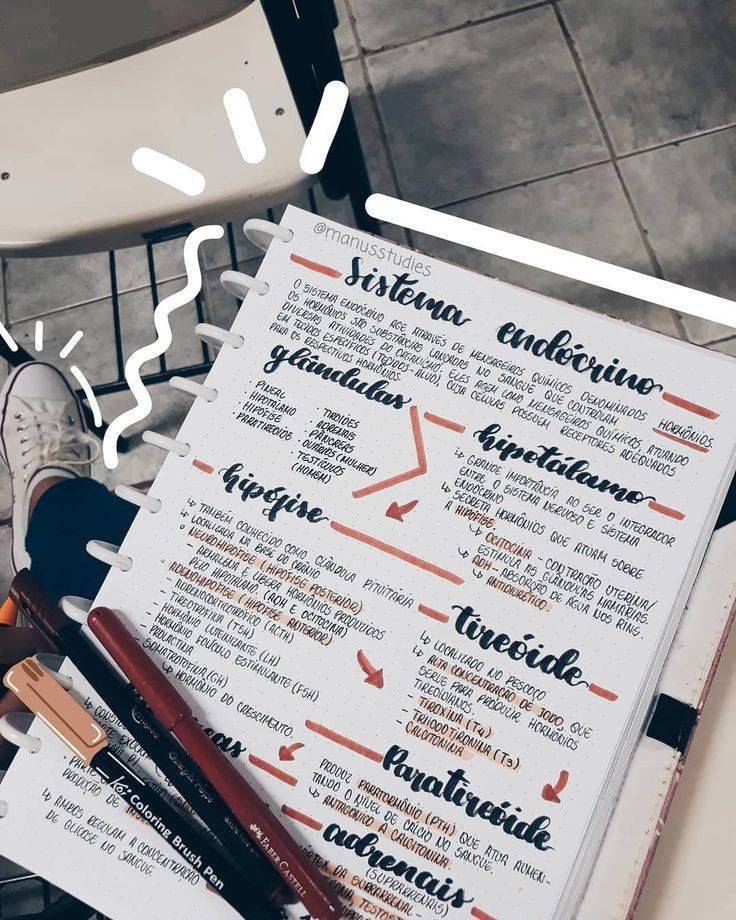 @manusstudies
Sistema endócrino
O SISTEMA ENDÓCRINO AGE ATRAVÉS DE MENSAGEIROS QUÍMICOS DENOMINADOS HORMÔNIOS.
OS HORMÔNIOS SÃO SUBSTÂNCIAS LANÇADAS NO SANGUE QUE CONTROLAM
DIVERSAS ATIVIDADES DO ORGANISMO. ELES AGEM COMO MENSAGEIROS QUÍMICOS, ATUANDO
EM TECIDOS ESPECÍFICOS (TECIDOS-ALVO), CUJA CÉLULAS POSSUEM RECEPTORES ADEQUADOS
PARA OS RESPECTIVOS HORMÔNIOS.
glândulas
· PINEAL
· HIPOTÁLAMO
· HIPÓFISE
· PARATIREÓIDES
TIREÓIDES
ADRENAIS
PÂNCREAS
OVÁRIOS (MULHER)
TESTÍCULOS
(HOMEM)
hipotálamo
↳ GRANDE IMPORTÂNCIA AO SER O INTEGRADOR
ENTRE O SISTEMA NERVOSO E SISTEMA
ENDÓCRINO
↳ SECRETA HORMÔNIOS QUE ATUAM SOBRE
A HIPÓFISE
↳ OCITOCINA - CONTRAÇÃO UTERINA/
ESTIMULA AS GLÂNDULAS MAMÁRIAS.
↳ ADH - ABSORÇÃO DE ÁGUA NOS RINS.
↳ ANTIDIURÉTICO
hipófise
↳ TAMBÉM CONHECIDO COMO GLÂNDULA PITUITÁRIA
↳ LOCALIZADA NA BASE DO CRÂNIO
○ NEUROHIPÓFISE (HIPÓFISE POSTERIOR)
- ARMAZENA E LIBERA HORMÔNIOS PRODUZIDOS
PELO HIPOTÁLAMO. (ADH E OCITOCINA)
○ ADENOHIPÓFISE (HIPÓFISE ANTERIOR)
- ADRENOCORTICOTRÓFICO (ACTH)
- TIREOTROFINA (TSH)
- HORMÔNIO LUTEINIZANTE (LH)
- HORMÔNIO FOLÍCULO ESTIMULANTE (FSH)
- PROLACTINA
- SOMATROTOFINA (GH)
↳ HORMÔNIO DO CRESCIMENTO.
tireóide
↳ LOCALIZADO NO PESCOÇO
↳ ALTA CONCENTRAÇÃO DE IODO, QUE
SERVE PARA PRODUZIR HORMÔNIOS
TIREDIANOS.
- TIROXINA (T4)
- TRIIODOTIRONINA (T3)
- CALCITONINA
Paratireóide
PRODUZ PARATORMÔNIO (PTH) QUE ATUA AUMEN-
TANDO O NÍVEL DE CÁLCIO NO SANGUE.
↳ ANTAGÔNICO A CALCITONINA.
adrenais
(SUPRARRENAIS)
DA SUPRARRENAL -
TESTOS
eas
PARTE
PRODUÇÃO DE
↳ AMBOS REGULAM A CONCENTRAÇÃO
DE GLICOSE NO SANGUE.
Coloring Brush Pen
FABER-CASTELL